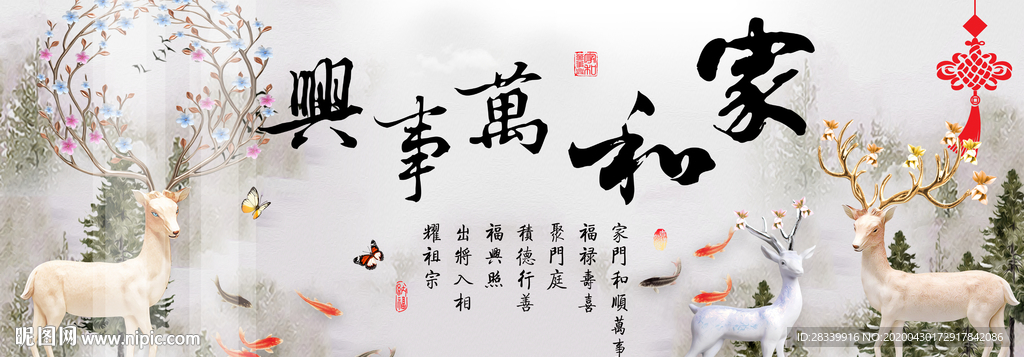 家和萬事興
家和
家門和順萬事
福禄壽喜
聚門庭
積德行善
福興照
出將入相
耀祖宗
納福
昵图网 www.nipic.com
ID:28339916 NO:20200430172917842086